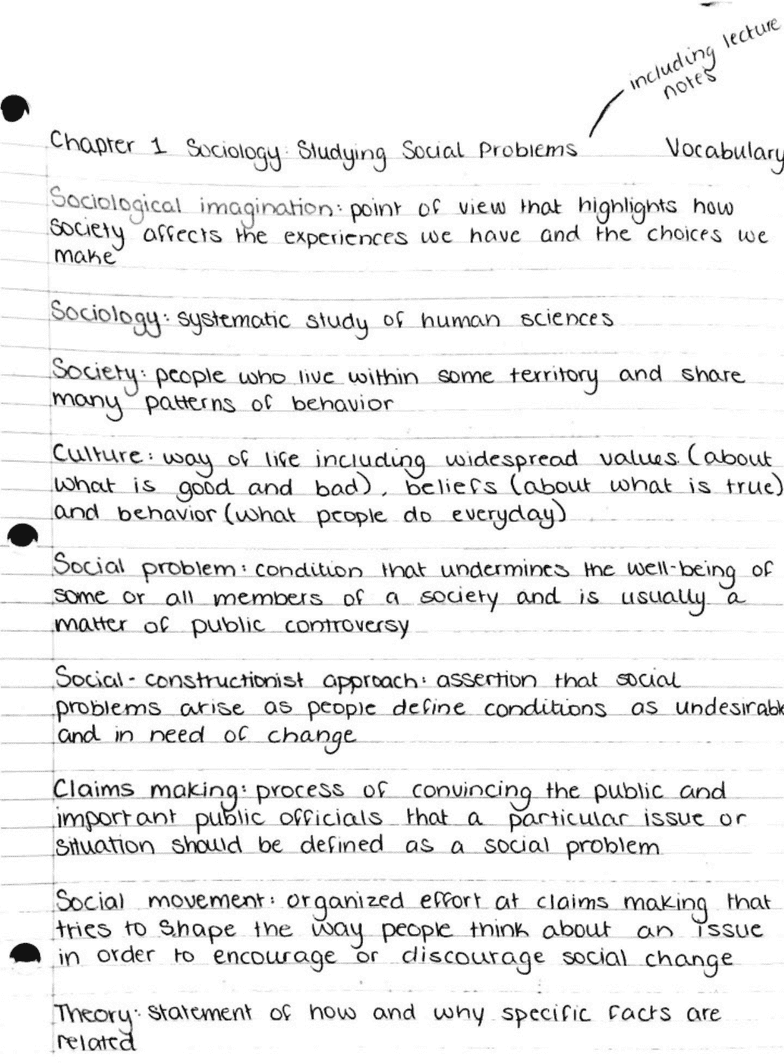 including lecture
notes
Chapter 1 Sociology: Studying Social Problems Vocabulary
Sociological imagination: point of view that highlights how
society affects the experiences we have and the choices we
make
Sociology: systematic study of human sciences
Society: people who live within some territory and share
many patterns of behavior
Culture: way of life including widespread values (about
what is good and bad), beliefs (about what is true)
and behavior (what people do everyday)
Social problem: condition that undermines the well-being of
some or all members of a society and is usually a
matter of public controversy
Social-constructionist approach: assertion that social
problems arise as people define conditions as undesirable
and in need of change
Claims making: process of convincing the public and
important public officials that a particular issue or
situation should be defined as a social problem
Social movement: organized effort at claims making that
tries to shape the way people think about an issue
in order to encourage or discourage social change
Theory: statement of how and why specific facts are
related